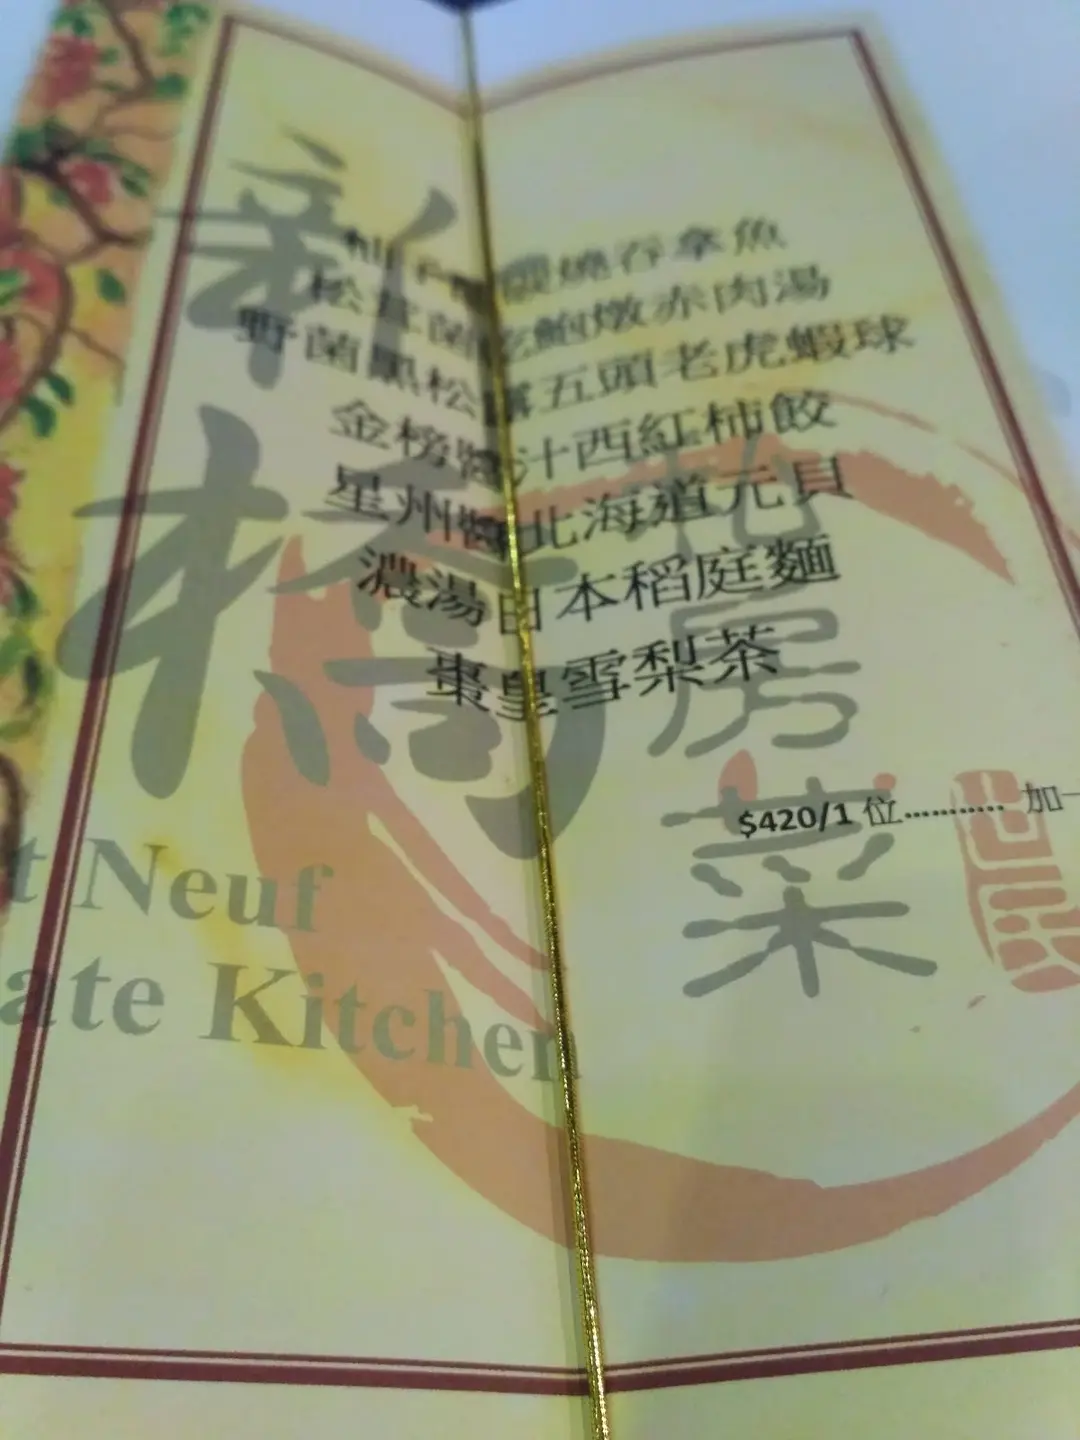 燒吞拿魚
松茸菌花鮑燉赤肉湯
野菌黑松露五頭老虎蝦球
金榜醬汁西紅柿餃
星州醬北海道元貝
濃湯日本稻庭麵
棗皇雪梨茶
$420/1 位........... 加一
新橋
私房菜
t Neuf
ate Kitchen